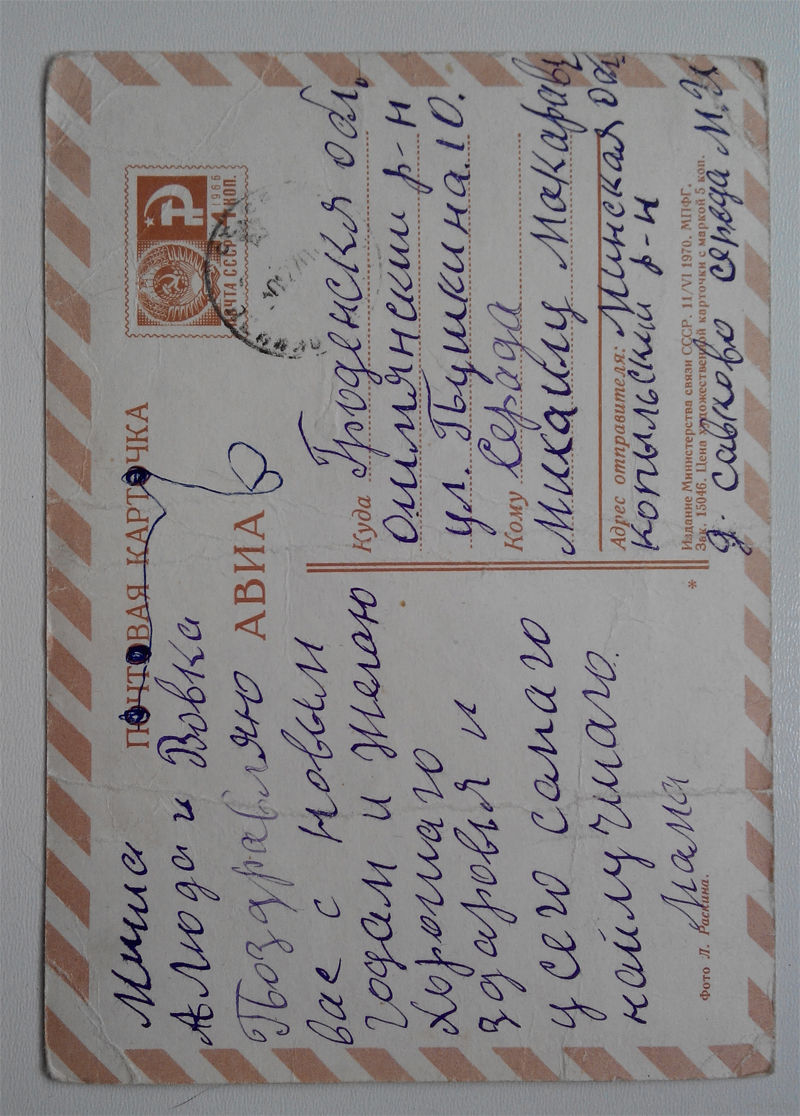 ПОЧТОВАЯ КАРТОЧКА
АВИА
1966
ПОЧТА СССР 4 КОП.
Миша
Алюда и Вовка
Поздравляю
вас с новым
годам и желаю
хорошаго
здаровья и
усего самаго
найлучшаго.
Мама
Фото Л. Раскина.
Куда Гроденская обл.
ошмянский р-н
ул. Пушкина. 10.
Кому Серада
Михаилу Макарав
Адрес отправителя: Минская обл
копыльский р-н
Издание Министерства связи СССР. 11/VI 1970. МПФГ.
Зак. 15046. Цена художественной карточки с маркой 5 коп.
д. савково середа М.
*